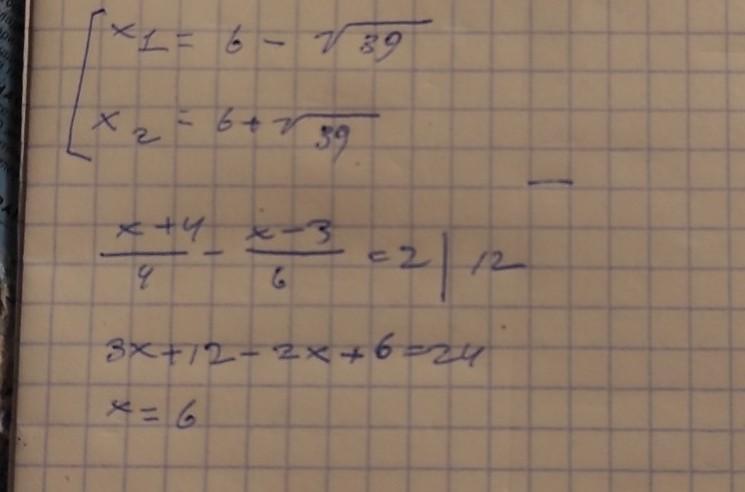 x1 = 6 - √39
x2 = 6 + √39
(x+4)/4 - (x-3)/6 = 2 | 12
3x+12-2x+6=24
x = 6